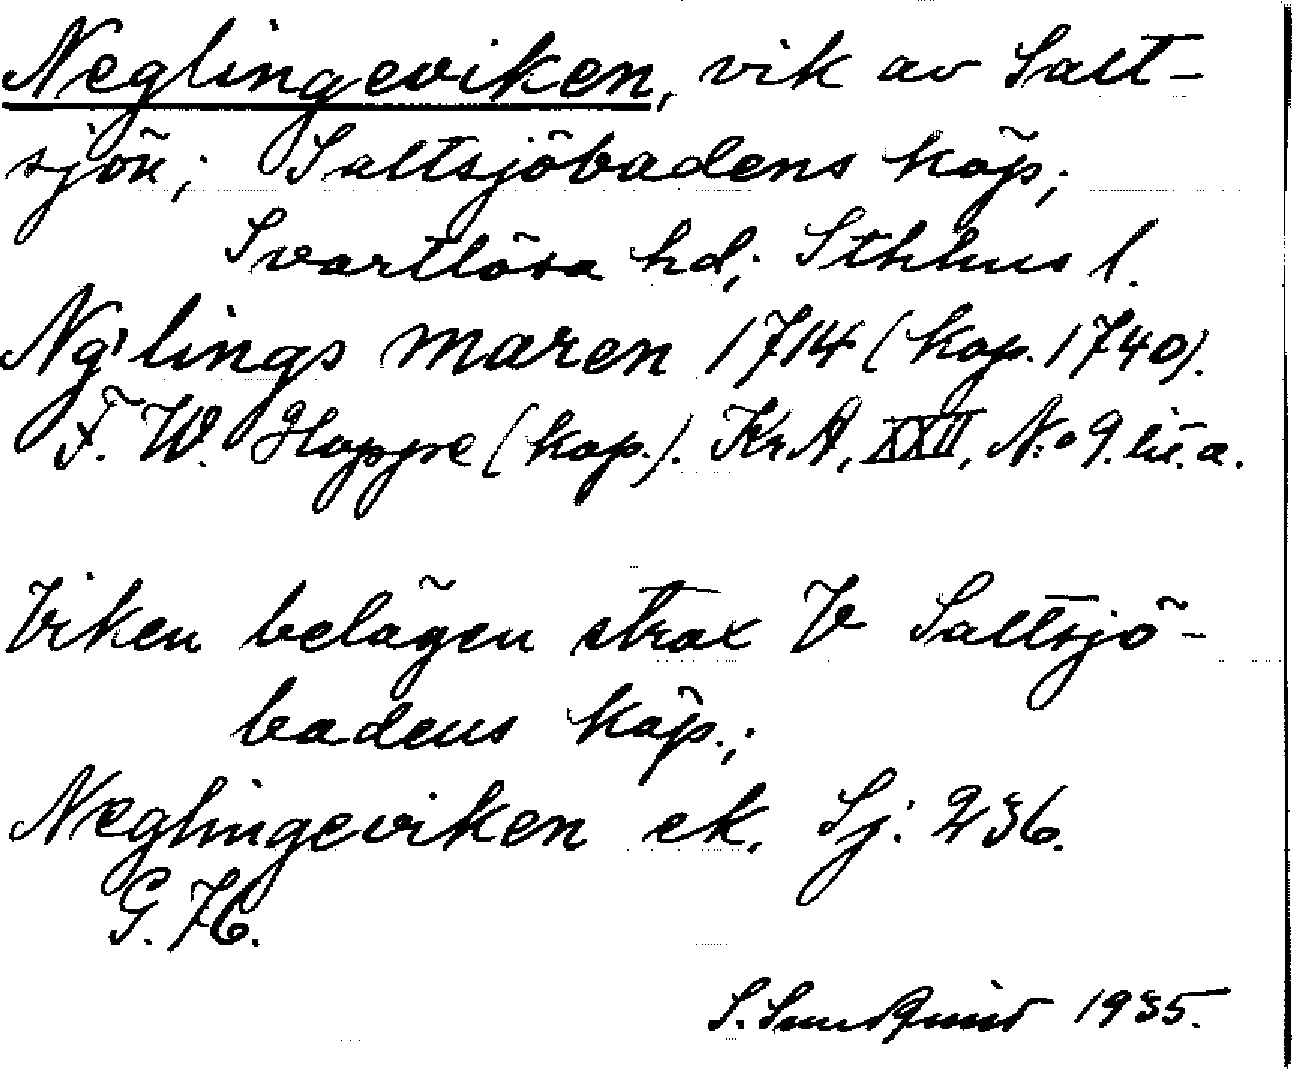 Neglingeviken, vik av Salt-
sjön; Saltsjöbadens köp;
Svartlösa hd; Sthlms l.
Ng'lings maren 1714 (kop. 1740).
F. W. Hoppe (kop.). KrA, XXII, No 9. lit. a.
Viken belägen strax V Saltsjö-
badens köp.;
Neglingeviken ek. Sj: 236.
G. 76.
S. 1935.